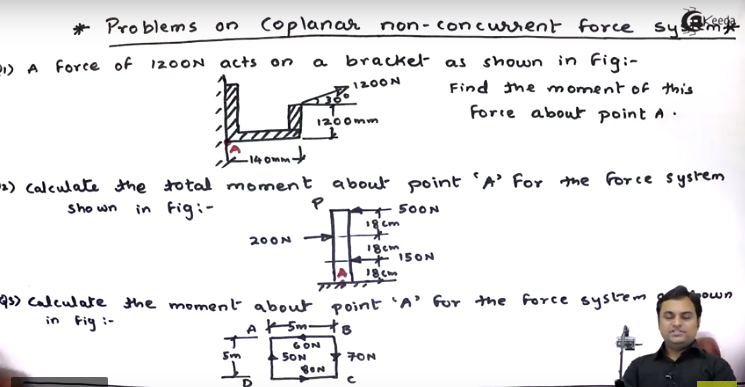 * Problems on Coplanar non-concurrent force system *
Q1) A force of 1200N acts on a bracket as shown in fig:-
1200N
30°
Find the moment of this
force about point A.
1200mm
A
140mm
2) Calculate the total moment about point 'A' for the force system
shown in fig:-
P
500N
18cm
200N
18cm
150N
A
18cm
Q3) Calculate the moment about point 'A' for the force system
in fig:-
A
5m
B
60N
5m
50N
70N
80N
D
C